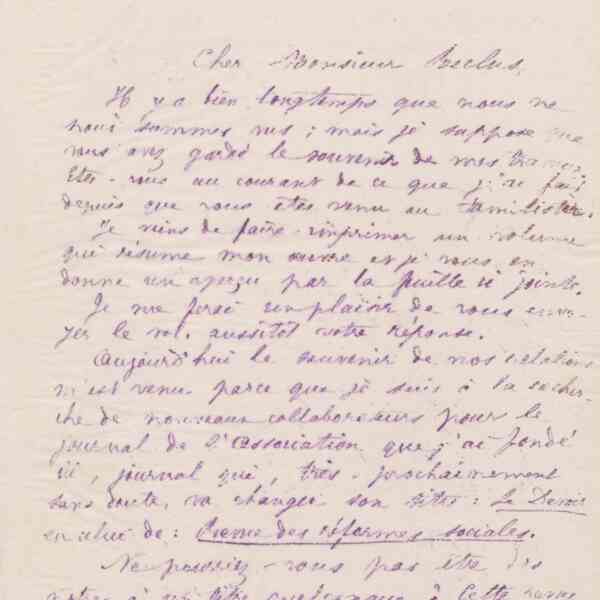 Cher Monsieur Reclus,
Il y a bien longtemps que nous ne
nous sommes vus ; mais je suppose que
vous avez gardé le souvenir de mes travaux,
Etes-vous au courant de ce que j'ai fait
depuis que vous êtes venu au familistère.
Je viens de faire imprimer un volume
qui résume mon œuvre et je vous en
donne un aperçu par la feuille ci jointe.
Je me ferai un plaisir de vous envo-
yer le vol. aussitôt votre réponse.
Aujourd'hui le souvenir de nos relations
m'est venu parce que je suis à la recher-
che de nouveaux collaborateurs pour le
journal de l'association que j'ai fondé
ici, journal qui, très-prochainement
sans doute, va changer son titre : Le Devoir
en celui de : Revue des réformes sociales.
Ne pourriez-vous pas être des
nôtres à un titre quelconque à cette revue